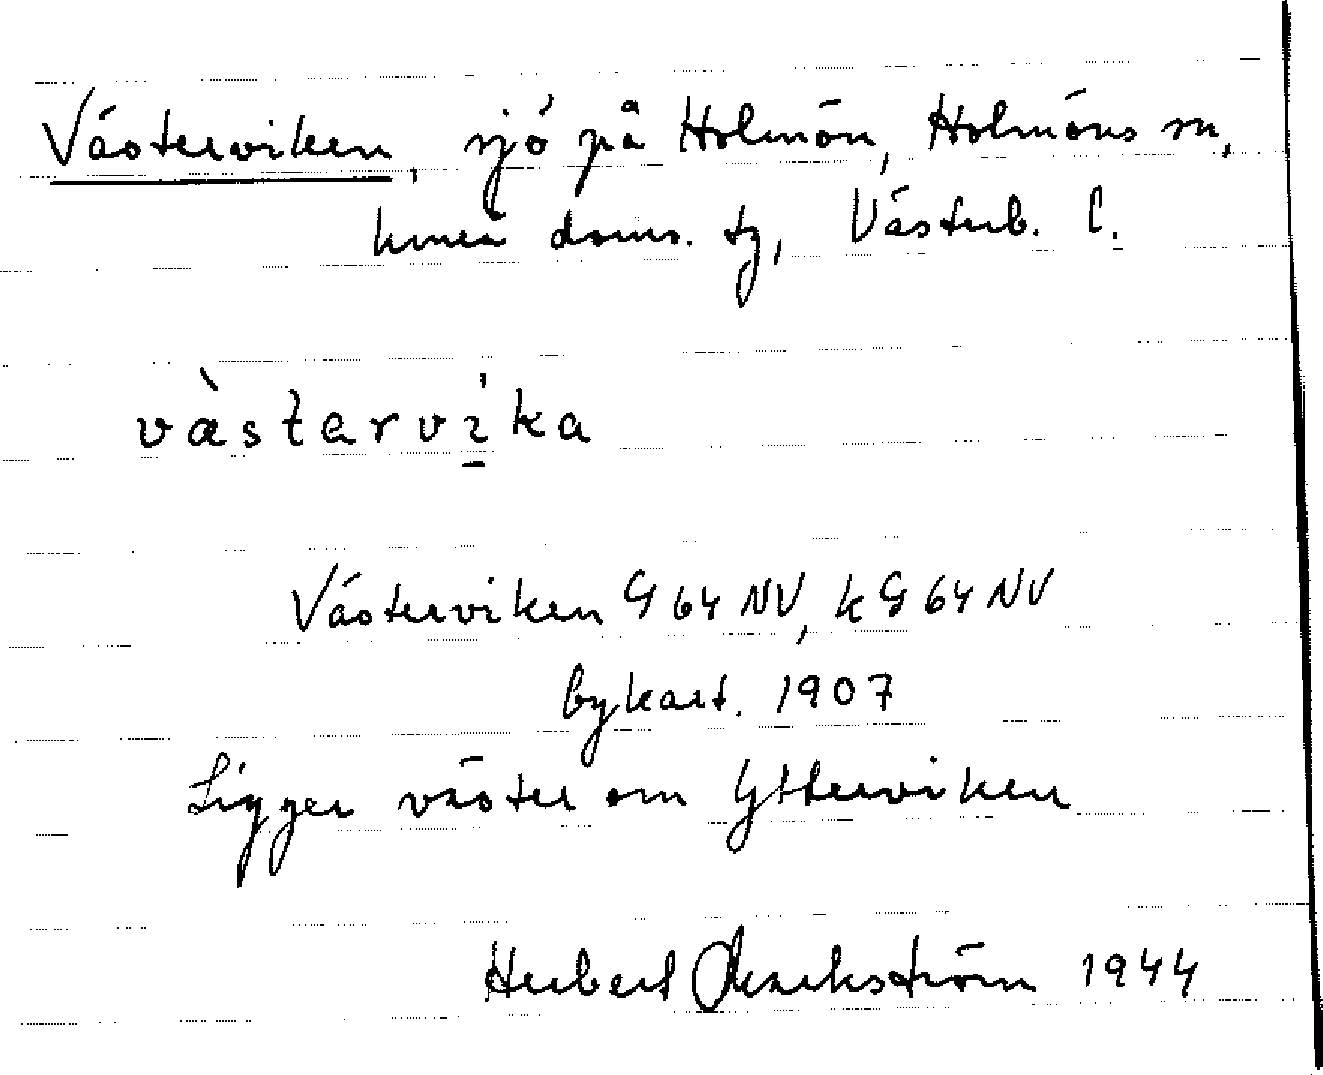 Västerviken, sjö på Holmön, Holmöns sn,
Umeå doms. tg, Västerb. l.
væ̀starvi̱ka
Västerviken G 64 NV, k G 64 NV
bykart. 1907
Ligger väster om Ytterviken
Herbert Markström 1944